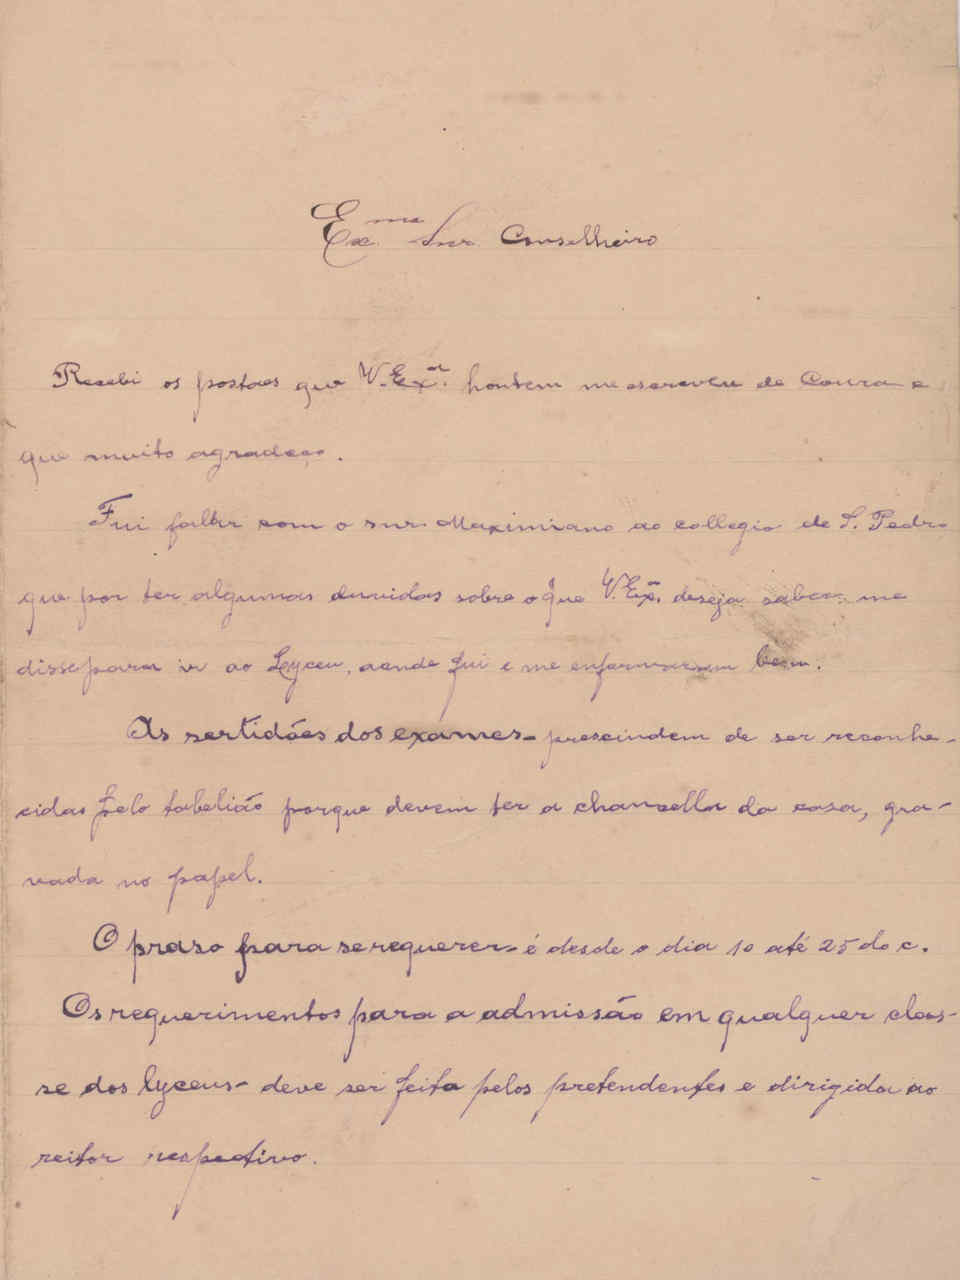 Ex.mo Snr. Conselheiro
Recebi os postaes que V. Ex.a hontem me escreveu de Coura e
que muito agradeço.
Fui fallar com o snr. Maximiano ao collegio de S. Pedro
que por ter algumas duvidas sobre o que V. Ex.a deseja saber, me
disse para ir ao Lyceu, aonde fui e me enformaram bem.
As sertidões dos exames - prescindem de ser reconhe-
cidas pelo tabelião porque devem ter a chancella da casa, gra-
vada no papel.
O praso para se requerer - é desde o dia 10 até 25 do c.
Os requerimentos para a admissão em qualquer clas-
se dos lyceus - deve ser feita pelos pretendentes e dirigida ao
reitor respectivo.